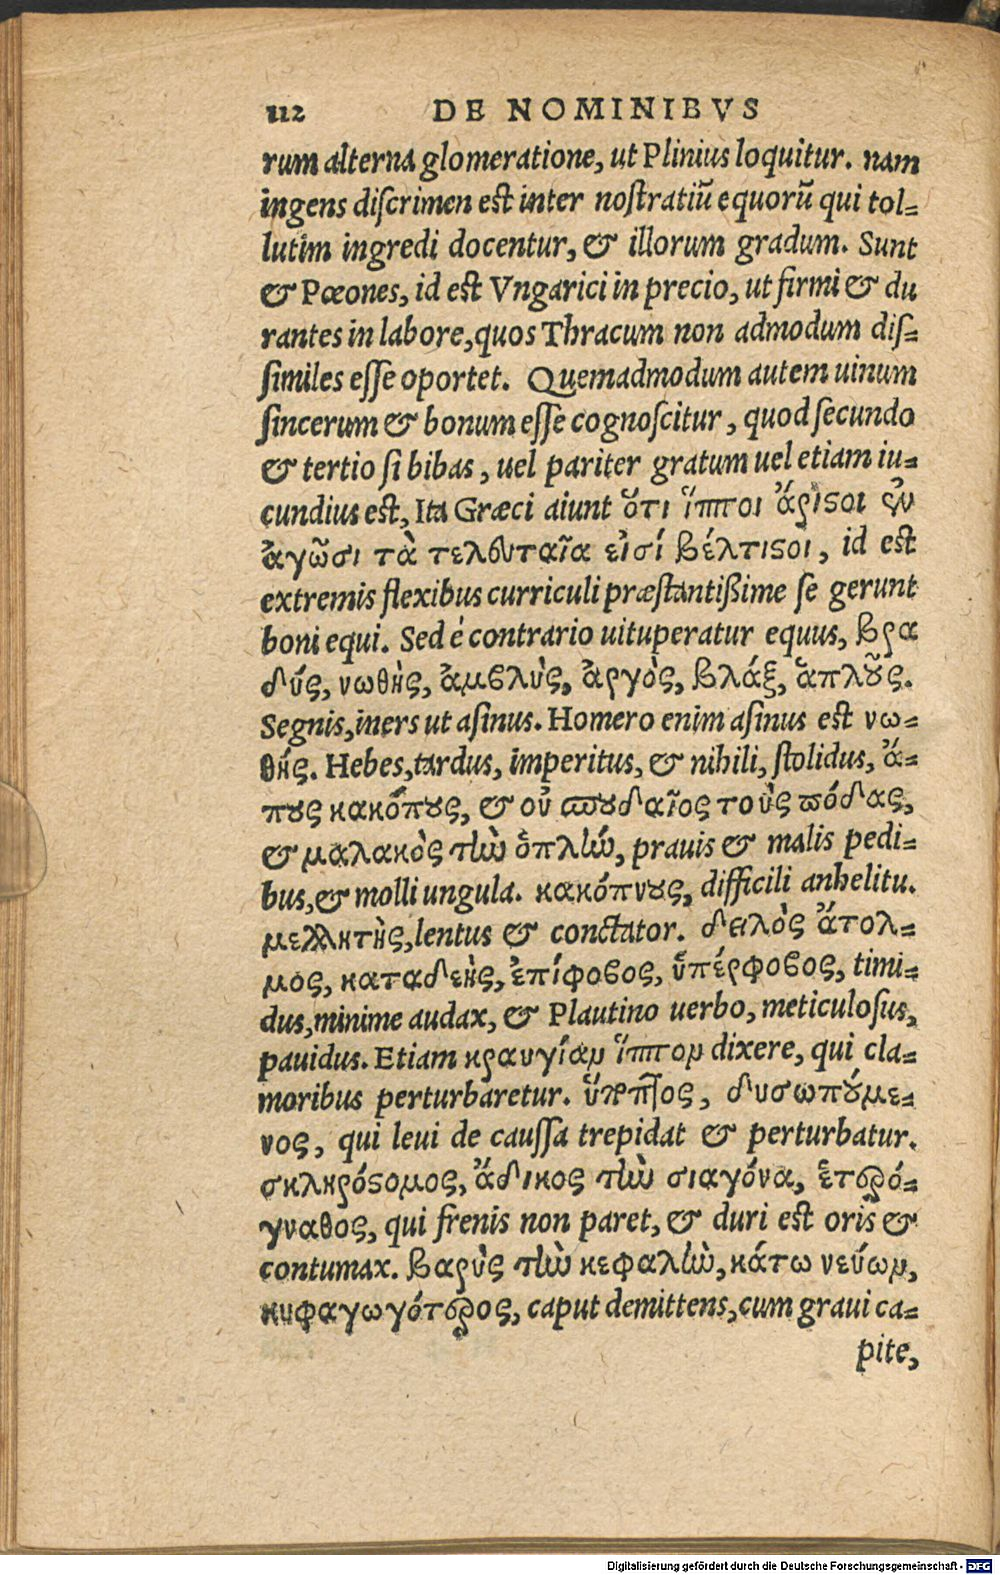 112 DE NOMINIBVS
rum alterna glomeratione, ut Plinius loquitur. nam
ingens diſcrimen est inter noſtratiũ equorũ qui tol=
lutim ingredi docentur, & illorum gradum. Sunt
& Pœones, id est Vngarici in precio, ut firmi & du
rantes in labore, quos Thracum non admodum diſ=
ſimiles eſſe oportet. Quemadmodum autem uinum
ſincerum & bonum eſſe cognoſcitur, quod ſecundo
& tertio ſi bibas, uel pariter gratum uel etiam iu=
cundius est, Ita Græci aiunt ὅτι ἵπποι ἄριϛοι ἐν
ἀγῶσι τὰ τελευταῖα εἰσί βέλτιϛοι, id est
extremis flexibus curriculi præſtantißime ſe gerunt
boni equi. Sed è contrario uituperatur equus, βρα
δύς, νωθὴς, ἀμβλὺς, ἀργὸς, βλάξ, ἁπλοῦς.
Segnis, iners ut aſinus. Homero enim aſinus est νω=
θής. Hebes, tardus, imperitus, & nihili, ſtolidus, ἄ=
πους κακόπους, & οὐ σπουδαῖος τοὺς πόδας,
& μαλακὸς τὴν ὁπλήν, prauis & malis pedi=
bus, & molli ungula. κακόπνους, difficili anhelitu.
μελλητὴς, lentus & conctator. δειλὸς ἄτολ=
μος, καταδεὴς, ἐπίφοβος, ὑπέρφοβος, timi=
dus, minime audax, & Plautino uerbo, meticuloſus,
pauidus. Etiam κραυγίαν ἵππον dixere, qui cla=
moribus perturbaretur. ὕποπτος, δυσωπούμε=
νος, qui leui de cauſſa trepidat & perturbatur.
σκληρόϛομος, ἄδικος τὴν σιαγόνα, ἑτερό=
γναθος, qui frenis non paret, & duri est oris &
contumax. βαρὺς τὴν κεφαλὴν, κάτω νεύων,
κυφαγωγότερος, caput demittens, cum graui ca=
pite,
Digitalisierung gefördert durch die Deutsche Forschungsgemeinschaft - DFG